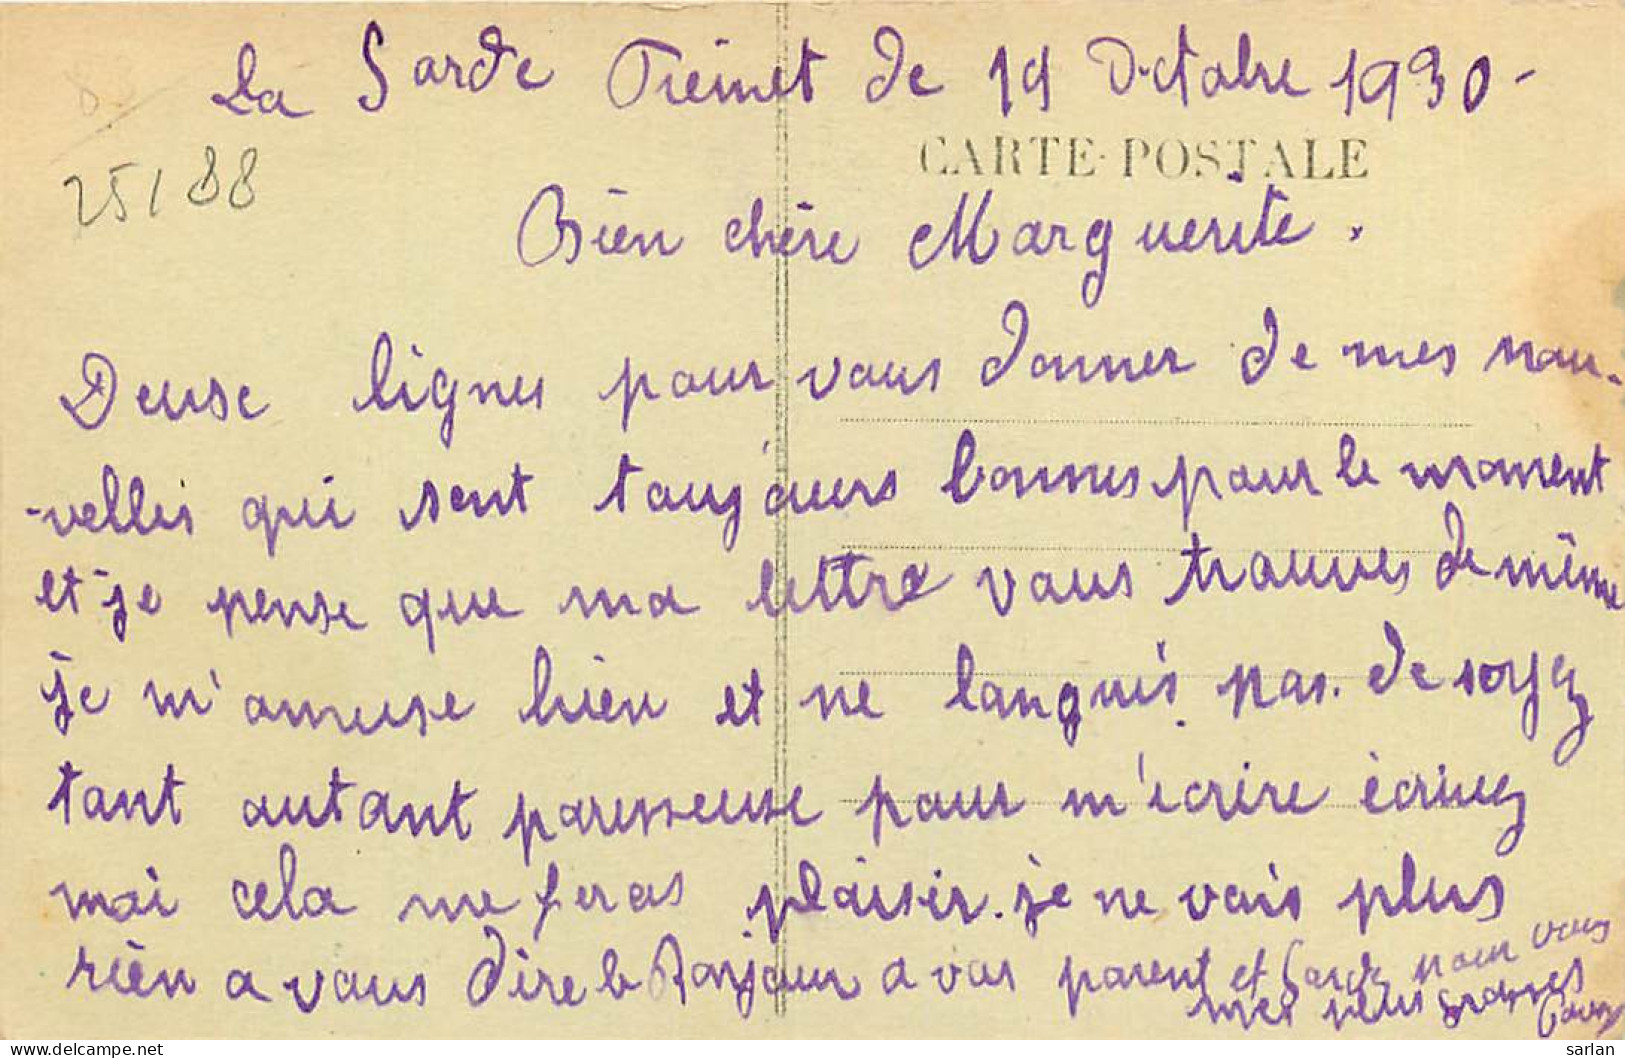 La Garde Freinet de 19 Octobre 1930-
83
25188
CARTE-POSTALE
Bien chère Marguerite.
Deuse lignes pour vous donner de mes nou-
-velles qui sont toujours bonnes pour le moment
et je pense que ma lettre vous trouves de même
je m'amuse bien et ne languis pas. de soyez
tant autant paresseuse pour m'écrire écrivez
moi cela me feras plaisir. je ne vais plus
rien a vous dire le Bonjour a vos parent et Garde pour vous
mes plus
delcampe.net
sarlan